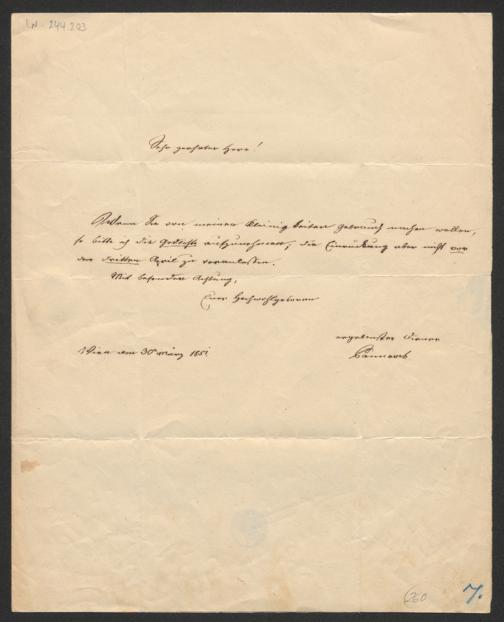 I.N. 244.203
Sehr geehrter Herr!
Wenn Sie von meinen Kleinigkeiten Gebrauch machen wollen,
so bitte ich die Gedichte aufzunehmen, die Einrückung aber nicht vor
den dritten April zu veranlassen.
Mit besonderer Achtung,
Euer Hochwohlgeboren
ergebenster Diener
Wien am 30 März 1851
260
7.